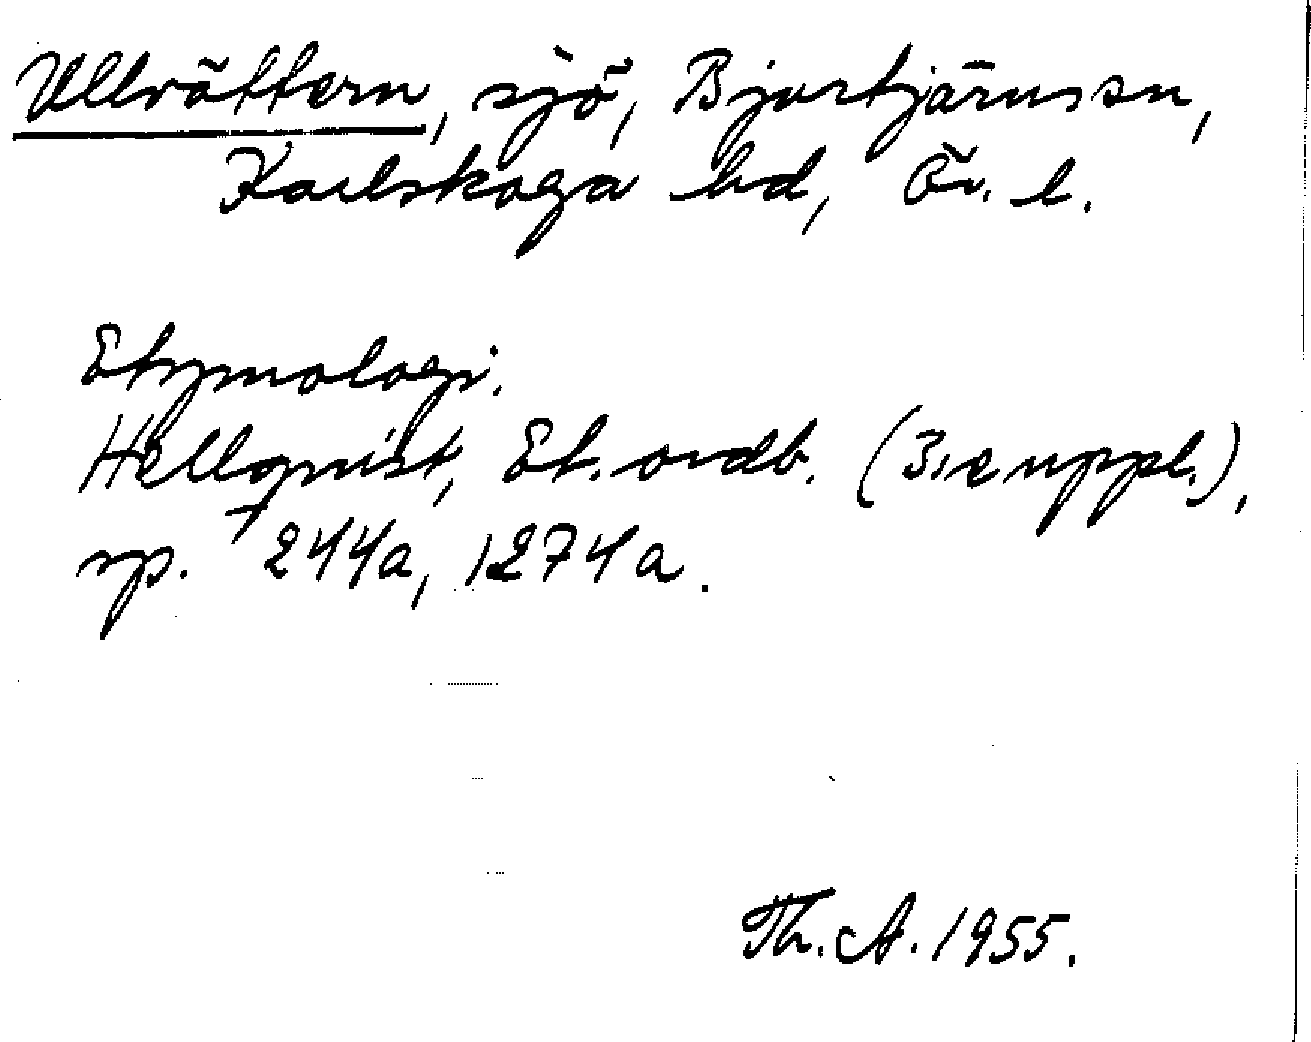 Ullvättern, sjö, Bjurtjärns sn,
Karlskoga hd, Ör. l.
Etymologi.
Hellquist, Et. ordb. (3:e uppl.),
sp. 244a, 1274a.
Th. A. 1955.